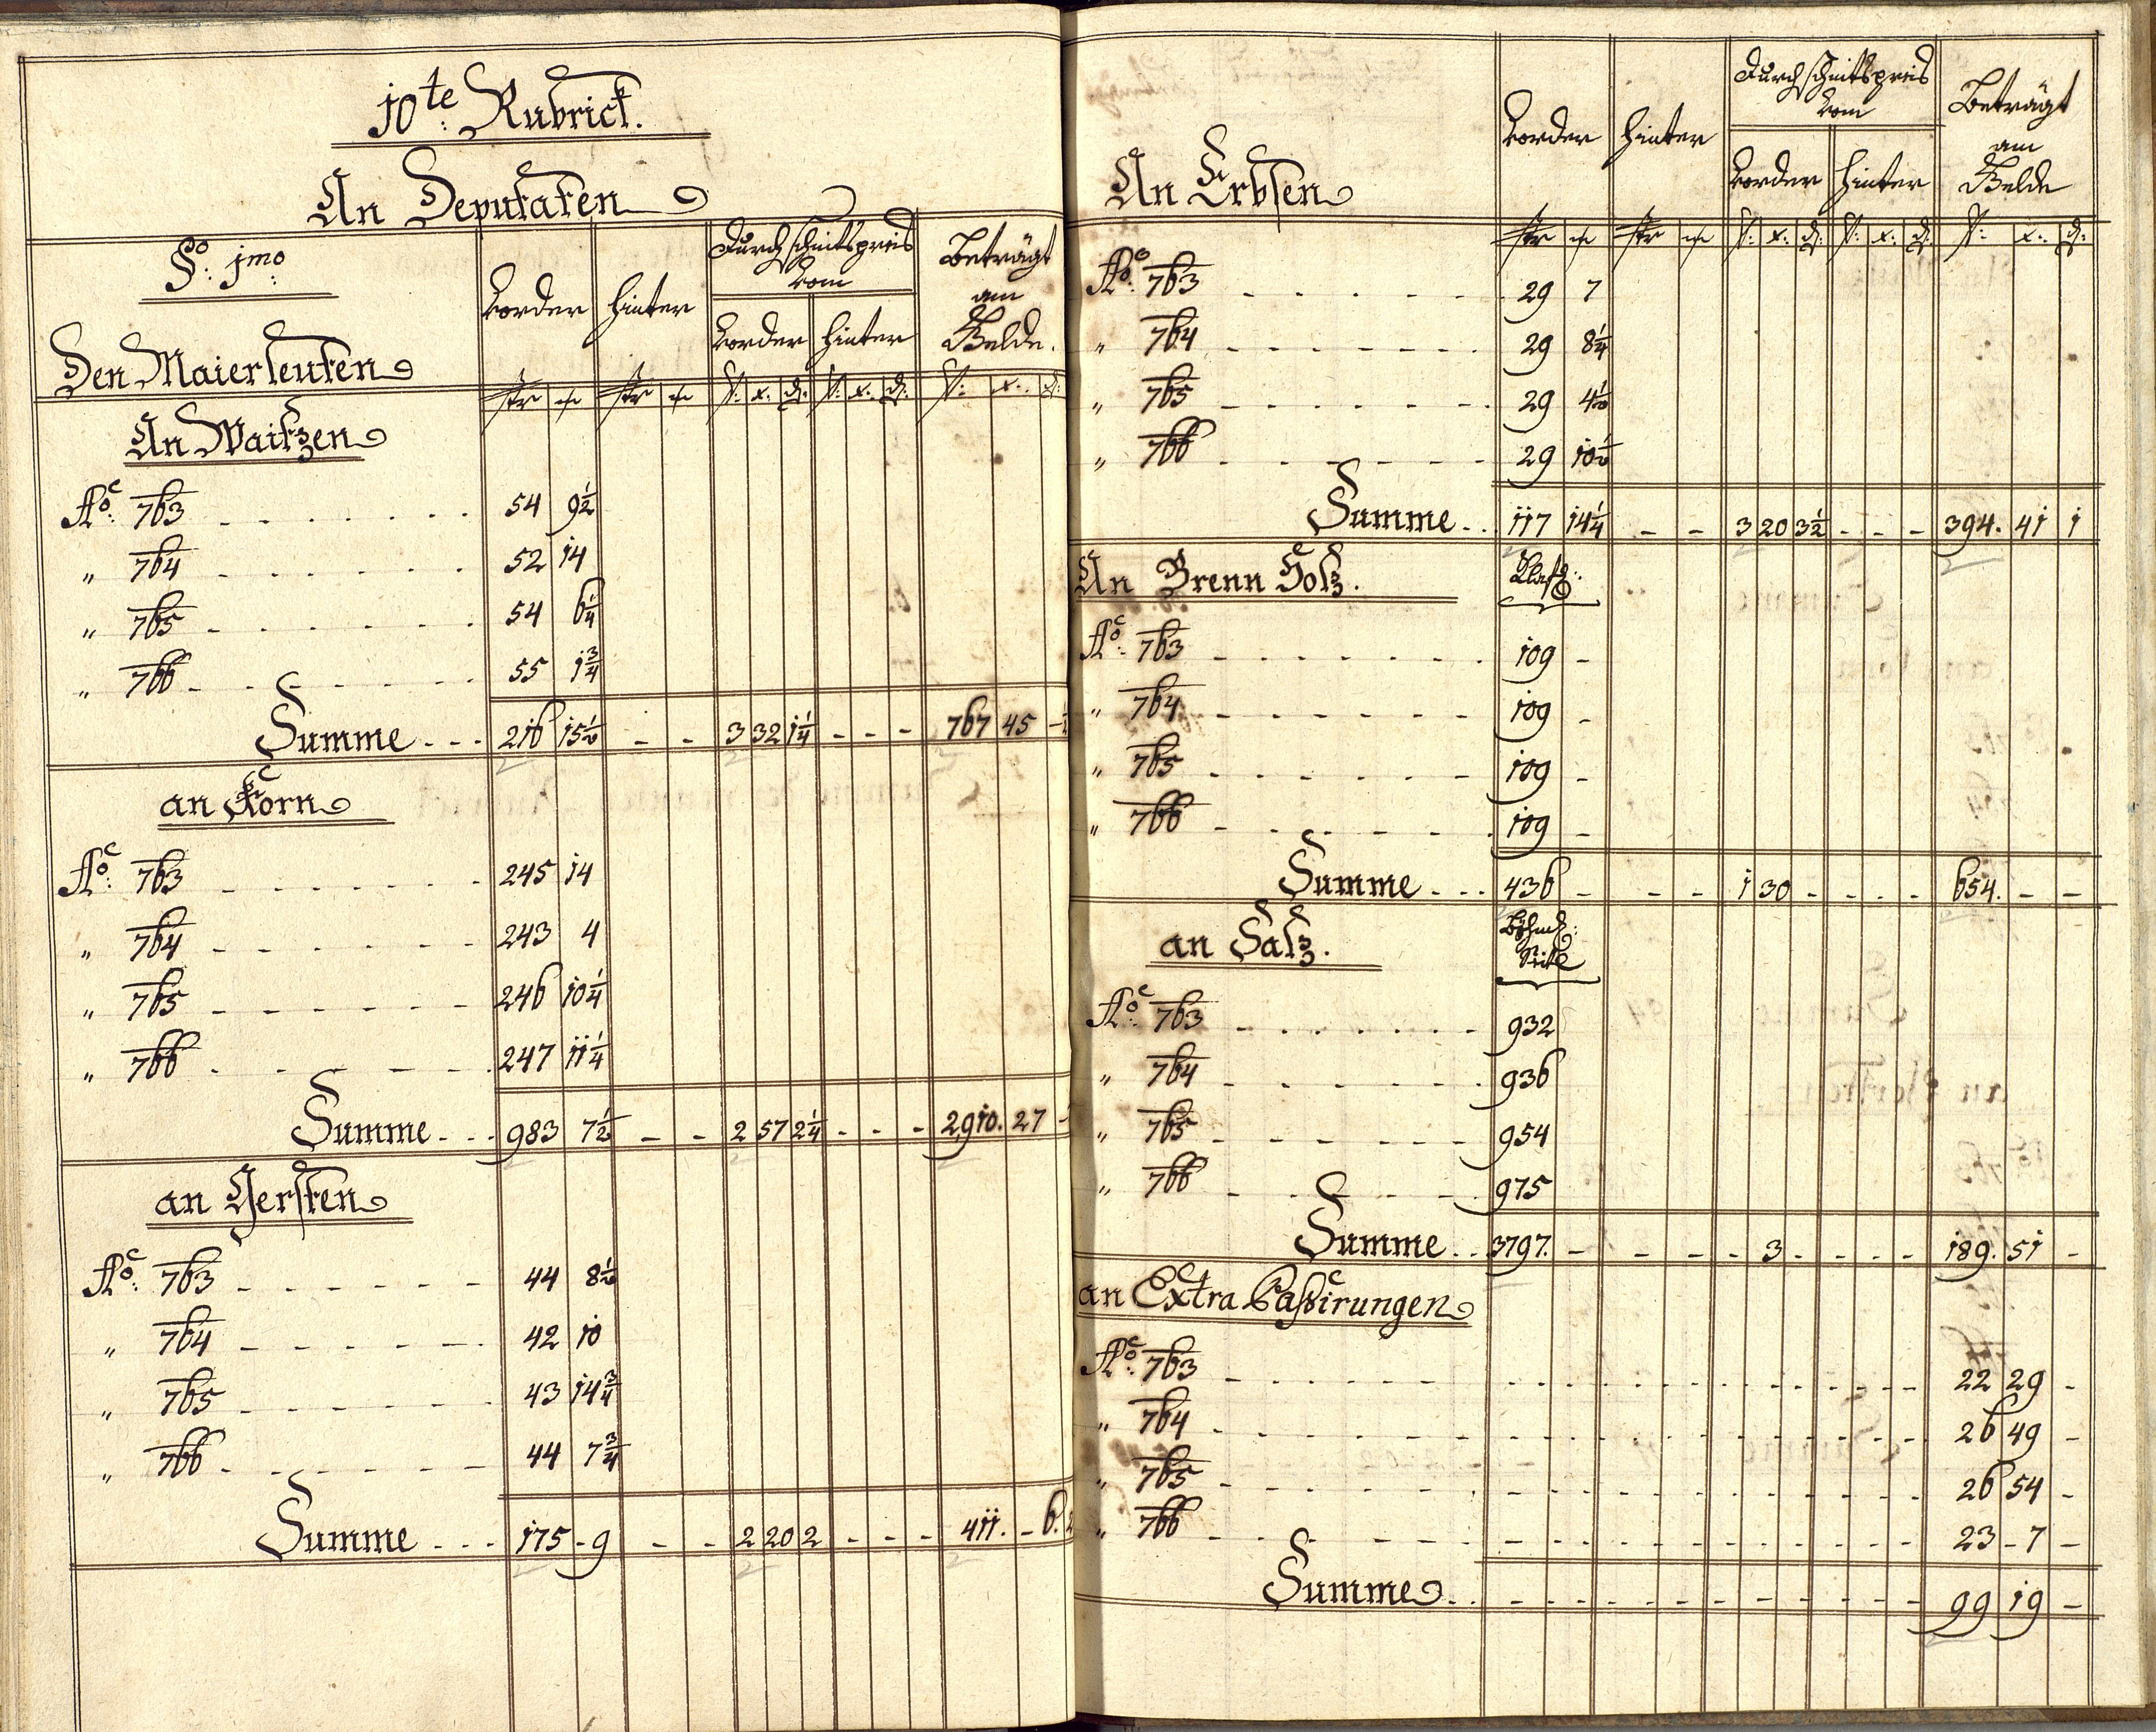 10te: Rubrick.
An Deputaten
§o: jmo:
Den Maierleuten
Vorder Hinter Durchschnitspreis vom Beträgt am Gelde.
Vorder Hinter
Str Str fl: x: d: fl: x: d: fl: x: d:
An Waitzen
Ao: 763 54 9½
" 764 52 14
" 765 54 6¼
" 766 55 1¾
Summe 216 15½ - - 3 32 1¼ - - - 767 45
an Korn
Ao: 763 245 14
" 764 243 4
" 765 246 10¼
" 766 247 11¼
Summe 983 7½ - - 2 57 2¼ - - - 2910. 27
an Gersten
Ao: 763 44 8½
" 764 42 10
" 765 43 14¾
" 766 44 7¾
Summe 175 - 9 - - 2 20 2 - - - 411. - 6.
An Erbsen
Vorder Hinter Durchschnitspreis vom Beträgt am Gelde
Vorder Hinter
Str Str fl: x: d: fl: x: d: fl: x: d:
Ao: 763 29 7
" 764 29 8¼
" 765 29 4½
" 766 29 10½
Summe 117 14¼ - - 3 20 3½ - - - 394. 41 1
An Brenn Holz. Klaft:
Ao: 763 109 -
" 764 109 -
" 765 109 -
" 766 109 -
Summe 436 - - - 1 30 - - - - 654. - -
an Salz.
Ao: 763 932
" 764 936
" 765 954
" 766 975
Summe 3797. - - - - 3 - - - - 189. 51 -
an Extra Passirungen
Ao: 763 22 29 -
" 764 26 49 -
" 765 26 54 -
" 766 23 - 7 -
Summe 99 19 -